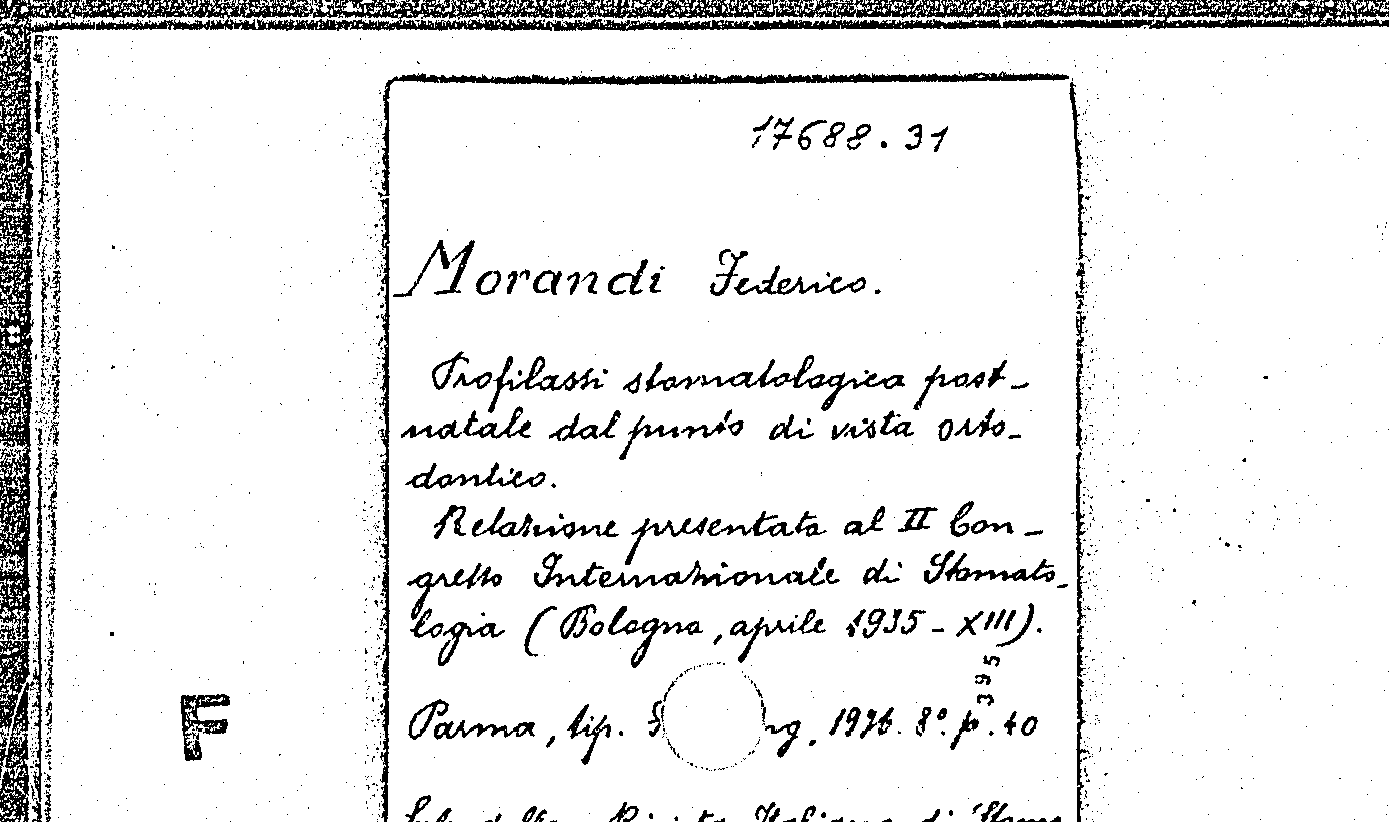 17688.31
Morandi Federico.
Profilassi stomatologica post-
natale dal punto di vista orto-
dontico.
Relazione presentata al II Con-
gresso Internazionale di Stomato-
logia (Bologna, aprile 1935-XIII).
395
Parma, tip. 8º. p. 40
F
della Rivista Italiana di Stoma